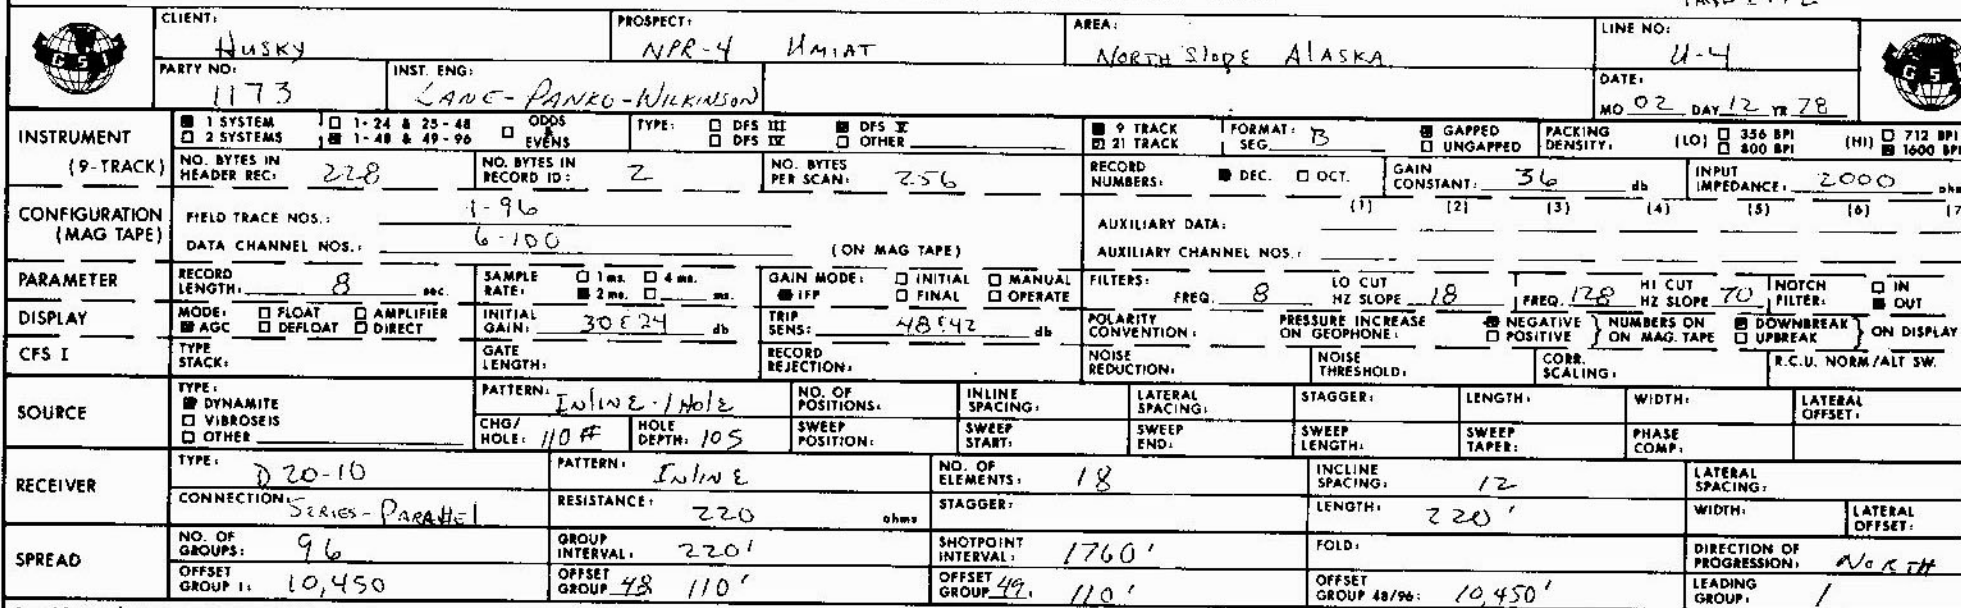 CLIENT: Husky PROSPECT: NPR-4 UMIAT AREA: NORTH SlopE AlASKA LINE NO: U-4
GSI GSI
PARTY NO: 1173 INST. ENG: LANE-PANKO-WILKINSON DATE: MO 02 DAY 12 YR 78
INSTRUMENT (9-TRACK) 1 SYSTEM 1-24 & 25-48 ODDS & EVENS TYPE: DFS III DFS V 9 TRACK FORMAT: B GAPPED PACKING DENSITY: (LO) 356 BPI (HI) 712 BPI
2 SYSTEMS 1-48 & 49-96 DFS IV OTHER 21 TRACK SEG. UNGAPPED 800 BPI 1600 BPI
NO. BYTES IN HEADER REC: 228 NO. BYTES IN RECORD ID: 2 NO. BYTES PER SCAN: 256 RECORD NUMBERS: DEC. OCT. GAIN CONSTANT: 36 db INPUT IMPEDANCE: 2000 ohms
CONFIGURATION (MAG TAPE) FIELD TRACE NOS.: 1-96 AUXILIARY DATA: (1) (2) (3) (4) (5) (6) (7
DATA CHANNEL NOS.: 6-100 (ON MAG TAPE) AUXILIARY CHANNEL NOS.:
PARAMETER RECORD LENGTH: 8 sec. SAMPLE RATE: 1 ms. 4 ms. 2 ms. ms. GAIN MODE: INITIAL MANUAL IFP FINAL OPERATE FILTERS: FREQ. 8 LO CUT HZ SLOPE 18 FREQ. 128 HI CUT HZ SLOPE 70 NOTCH FILTER: IN OUT
DISPLAY MODE: FLOAT AMPLIFIER AGC DEFLOAT DIRECT INITIAL GAIN: 30 & 24 db TRIP SENS: 48 & 42 db POLARITY CONVENTION: PRESSURE INCREASE ON GEOPHONE: NEGATIVE POSITIVE NUMBERS ON MAG. TAPE DOWNBREAK UPBREAK ON DISPLAY
CFS I TYPE STACK: GATE LENGTH: RECORD REJECTION: NOISE REDUCTION: NOISE THRESHOLD: CORR. SCALING: R.C.U. NORM/ALT SW.
SOURCE TYPE: DYNAMITE VIBROSEIS OTHER PATTERN: INlINE-1 HolE NO. OF POSITIONS: INLINE SPACING: LATERAL SPACING: STAGGER: LENGTH: WIDTH: LATERAL OFFSET:
CHG/HOLE: 110 # HOLE DEPTH: 105 SWEEP POSITION: SWEEP START: SWEEP END: SWEEP LENGTH: SWEEP TAPER: PHASE COMP:
RECEIVER TYPE: D 20-10 PATTERN: INlINE NO. OF ELEMENTS: 18 INCLINE SPACING: 12 LATERAL SPACING:
CONNECTION: SERIES-PARAllEl RESISTANCE: 220 ohms STAGGER: LENGTH: 220' WIDTH: LATERAL OFFSET:
SPREAD NO. OF GROUPS: 96 GROUP INTERVAL: 220' SHOTPOINT INTERVAL: 1760' FOLD: DIRECTION OF PROGRESSION: NORTH
OFFSET GROUP 1: 10,450 OFFSET GROUP 48 110' OFFSET GROUP 49. 110' OFFSET GROUP 48/96: 10,450' LEADING GROUP: 1